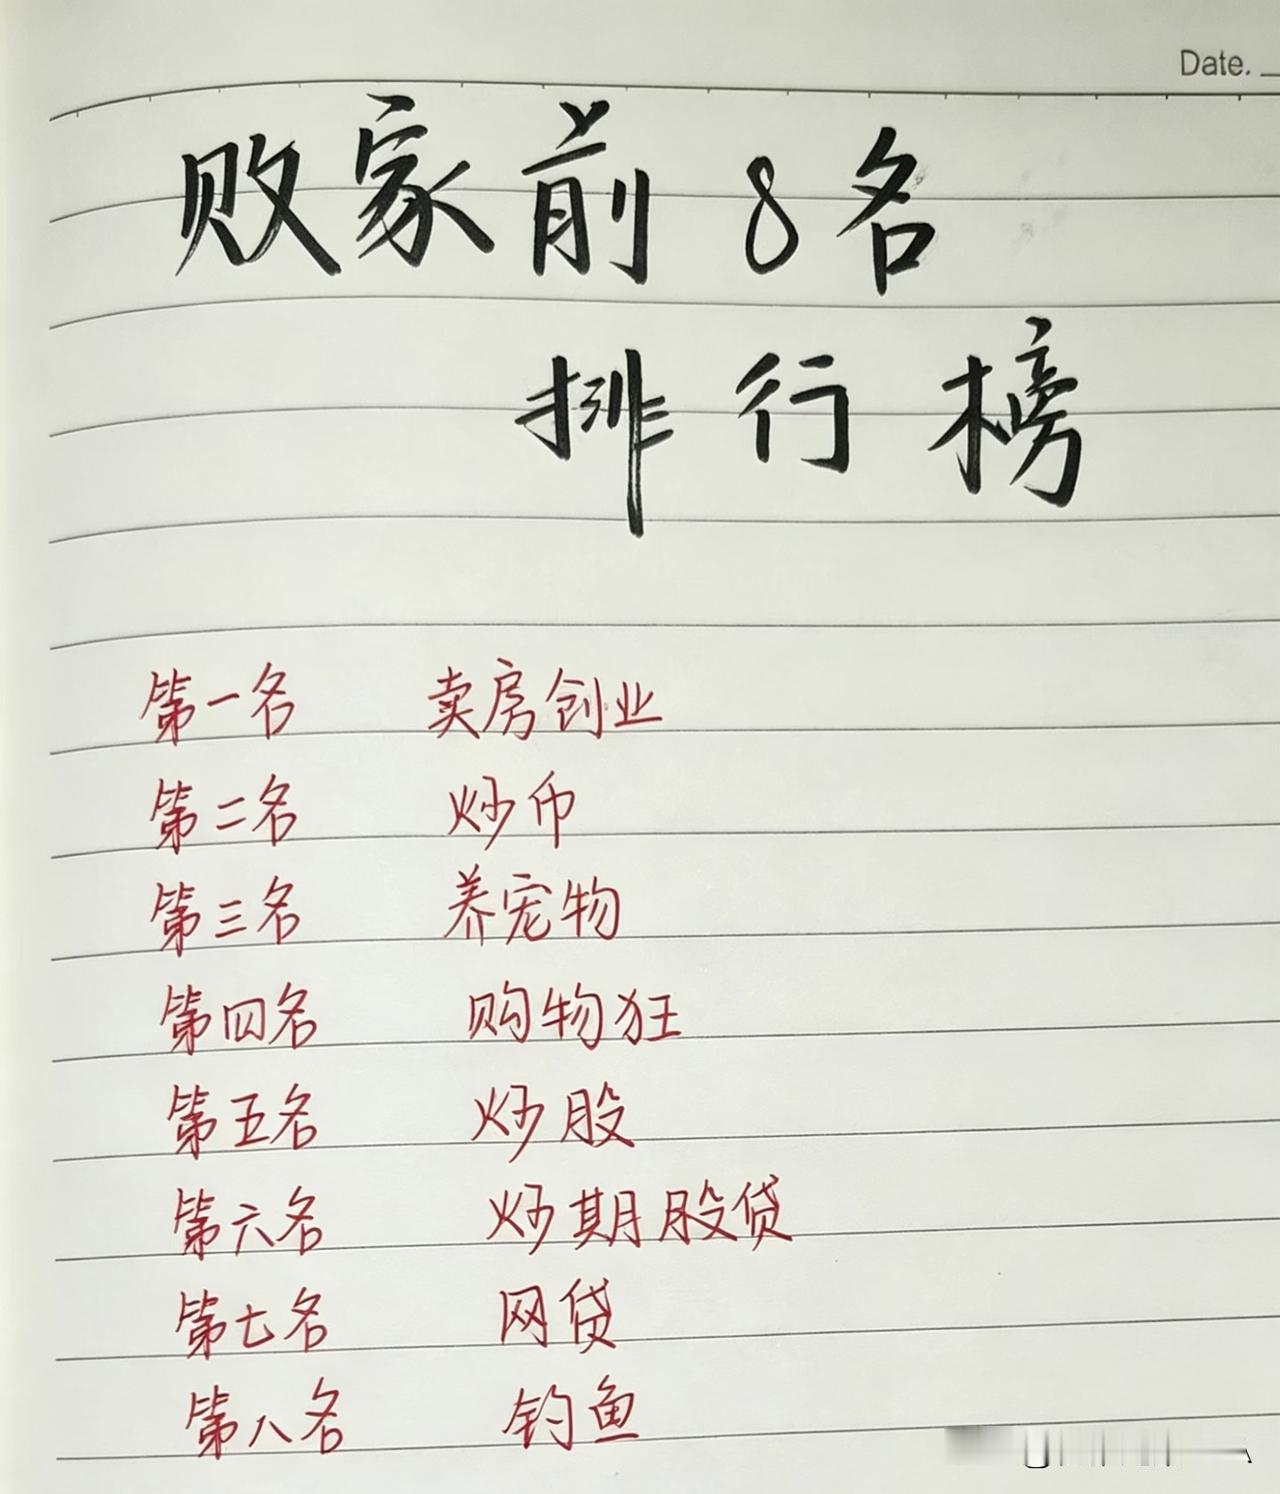 Date.
败家前8名
排行榜
第一名 卖房创业
第二名 炒币
第三名 养宠物
第四名 购物狂
第五名 炒股
第六名 炒期股贷
第七名 网贷
第八名 钓鱼